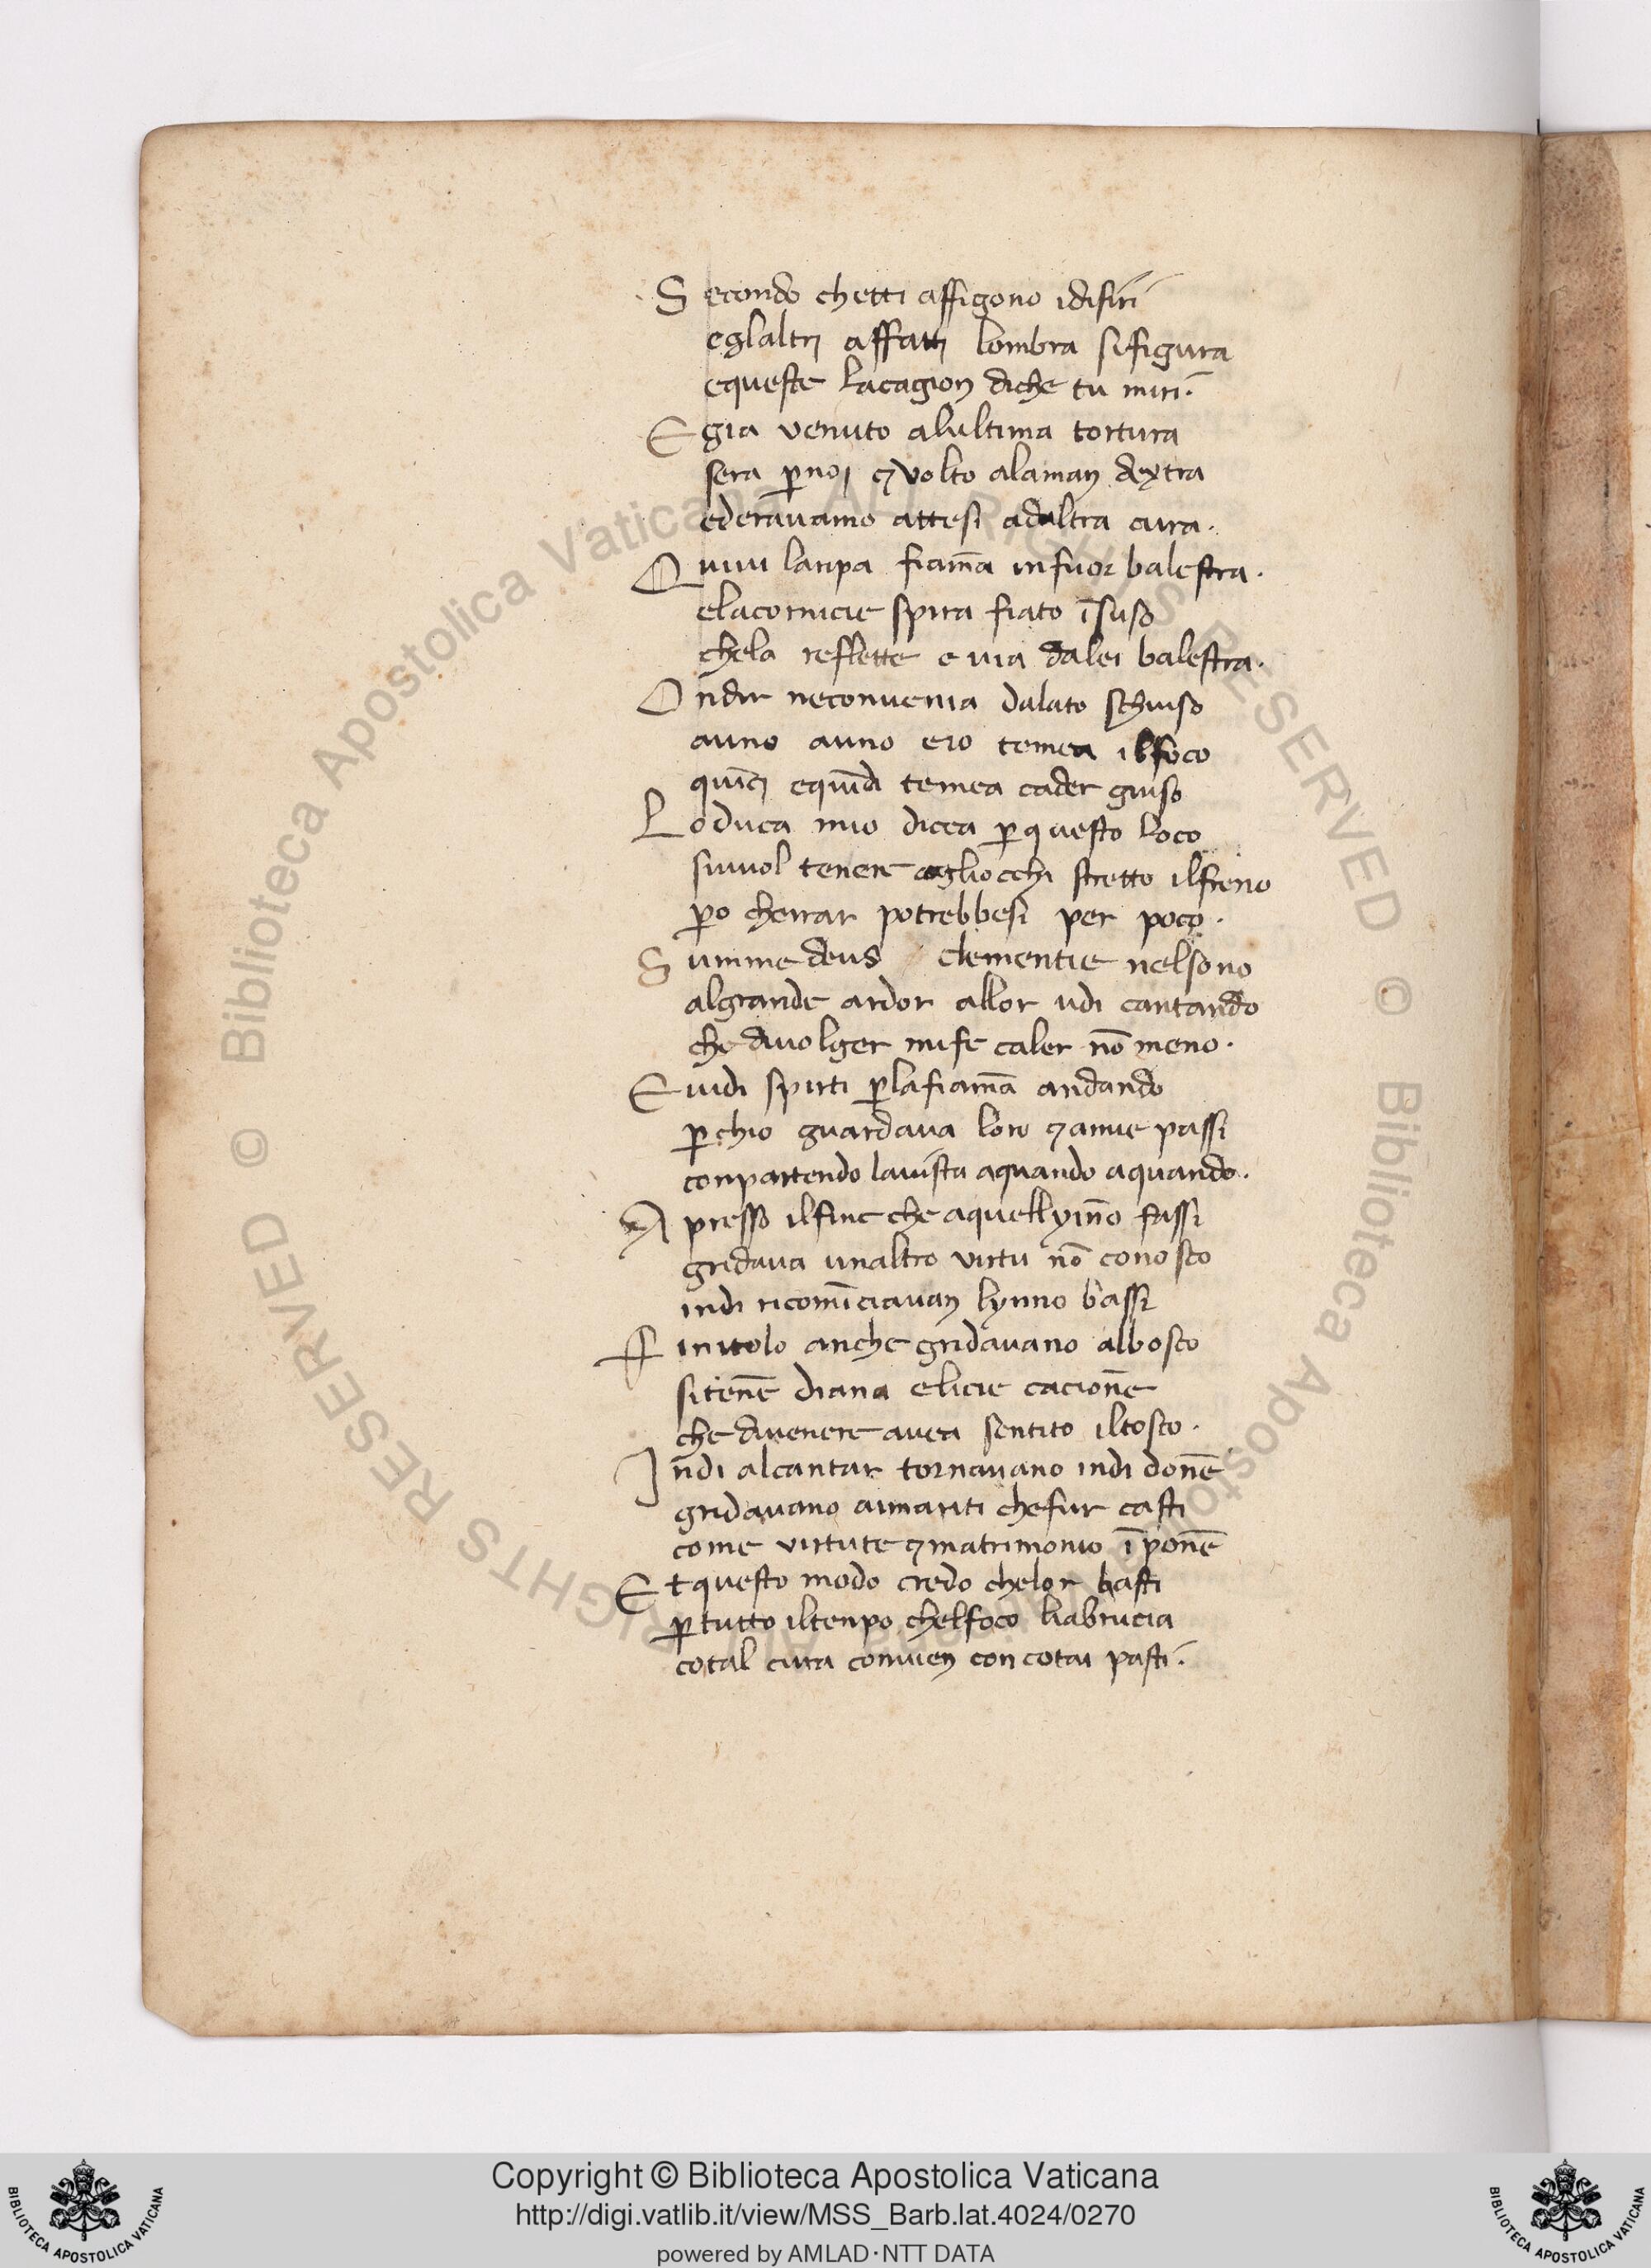 Secondo chetti affigono idisiri
eglaltrj affattj lombra sifigura
equeste lacagion diche tu miri.
E gia venuto alultima tortura
sera p̲noj ꝯvolto alaman dextra
ederavamo attesi adaltra cura.
Quiui lanpa fiam̄a infuor balestra.
elacornicie spira fiato īsuso
chela reflette e via dalei balestra.
Ondir neconvenia dalato schiuso
auno auno eio temea ilfoco
quīcj equīdi temea cader giuso
Loduca mio dicea p̲questo loco
sivuol tenere agliocchi stretto ilfreno
p̲o cherrar potrebbesi per poco.
Summe deus clementie nelsono
algrande ardor allor udi cantando
che divolger mife caler nō meno.
Evidi spirti p̲lafiam̄a andando
p̲chio guardava loro ꝯamie passi
conpartendo lavista aquando aquando.
Apresso ilfine che aquellyn̄o fassi
gridava unaltro virtu nō conosco
indi ricomīciavan lynno bassi
Finitolo anche gridavano albosco
sitēne diana elicie caciōne
che divenere avea sentito iltosco.
Indi alcantar tornavano indi dōne
gridavano aimariti chefur casti
come virtute ꝯmatrimonio īpōne
Et questo modo credo chelor basti
p̲tutto iltenpo chelfoco liabrucia
cotal cura convien con cotai pasti.
© Biblioteca Apostolica Vaticana ALL RIGHTS RESERVED © Biblioteca Apostolica Vaticana ALL RIGHTS RESERVED
Copyright © Biblioteca Apostolica Vaticana
http://digi.vatlib.it/view/MSS_Barb.lat.4024/0270
powered by AMLAD·NTT DATA
BIBLIOTECA APOSTOLICA VATICANA
BIBLIOTECA APOSTOLICA VATICANA